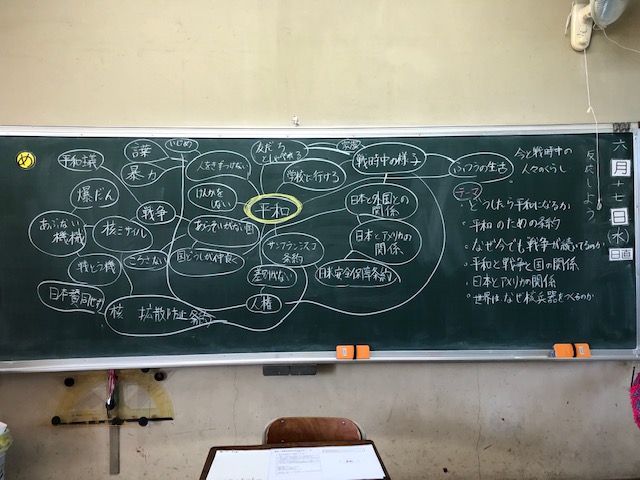 め
平和
友だちとしゃべれる
家族
戦時中の様子
ふつうの生活
学校に行ける
日本と外国との
関係
日本とアメリカの
関係
日本安全保障条約
サンフランシスコ
条約
差別しない
人権
人をきずつけない
けんかを
しない
あらそいがない国
国どうしが仲良く
いじめ
言葉
暴力
戦争
平和議
爆だん
あぶない
機械
核ミサイル
ころさない
戦とう機
日本賛同せず
核 拡散防止条約
今と戦時中の
人々のくらし
テーマ
・どうしたら平和になるか
・平和のための条約
・なぜ今でも戦争が続いてるのか
・平和と戦争と国の関係
・日本とアメリカの関係
・世界はなぜ核兵器をつくるのか
反応しよう
六
月
十七
日
水
日直